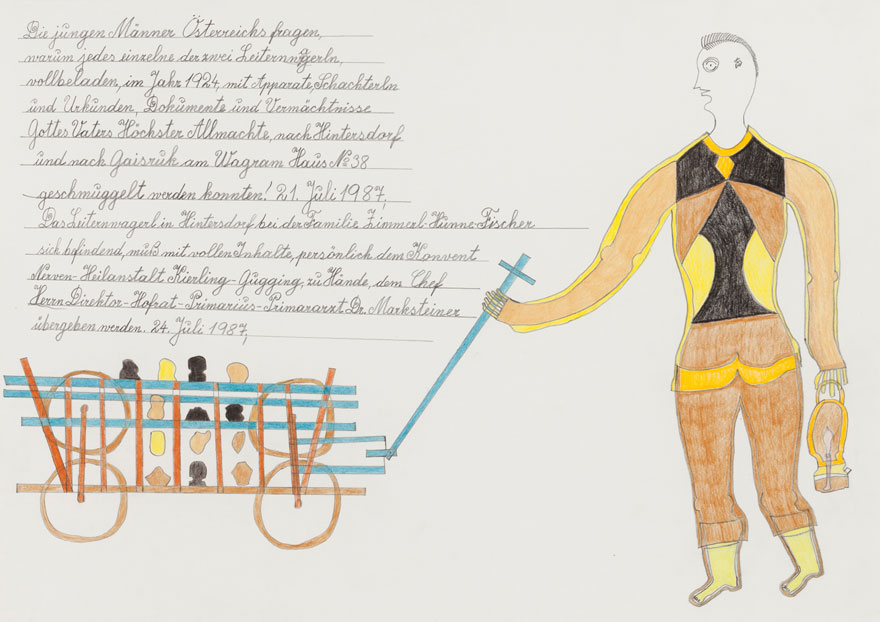 Die jungen Männer Österreichs fragen,
warum jedes einzelne der zwei Leiternwgerln,
vollbeladen, im Jahr 1924, mit Apparate, Schachterln
und Urkunden, Dokumente und Vermächtnisse
Gottes Vaters Höchster Allmachte, nach Hintersdorf
und nach Gaisruk am Wagram Haus No 38
geschmuggelt werden konnten! 21. Juli 1987,
Das Leiternwagerl in Hintersdorf bei der Familie Zimmerl-Hünne-Fischer
sich befindend, muß mit vollen Inhalte, persönlich dem Konvent
Nerven-Heilanstalt Kierling-Gugging, zu Hände, dem Chef
Herrn Direktor-Hofrat-Primarius-Primararzt Dr. Marksteiner
übergeben werden. 24. Juli 1987,